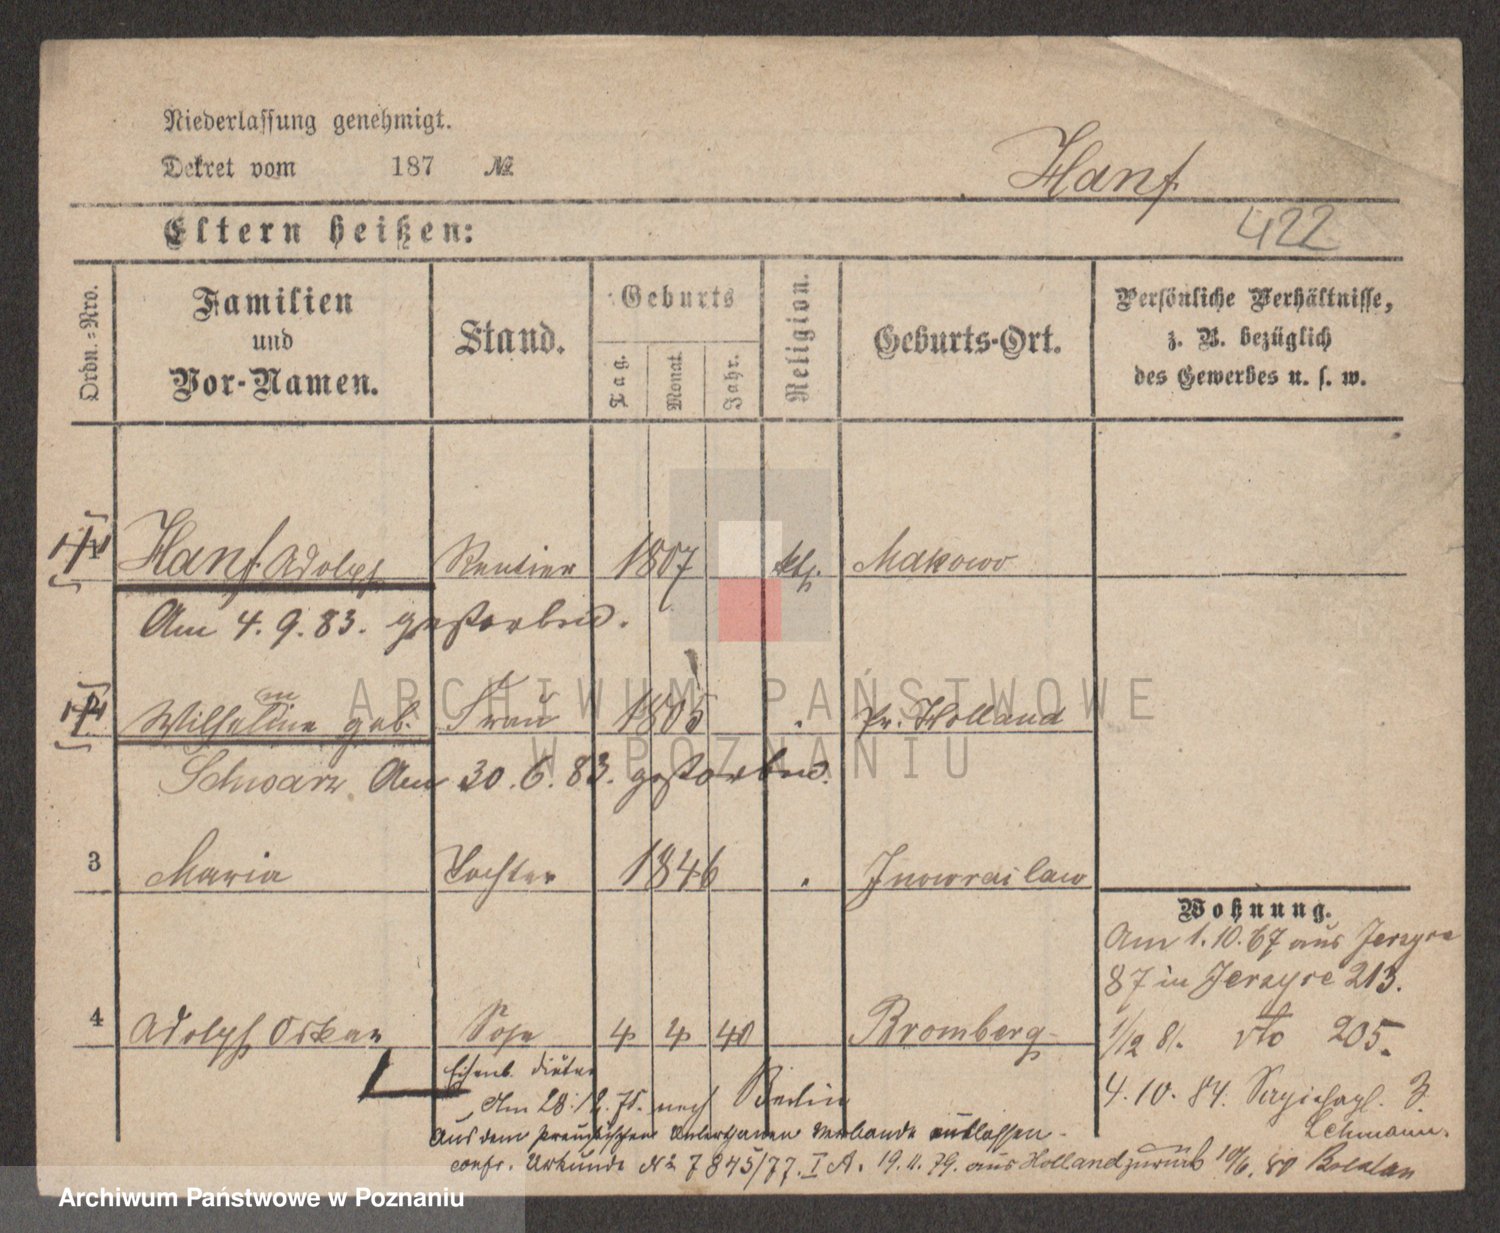 Niederlassung genehmigt.
Dekret vom 187 №
Hanf
422
Eltern heißen:
Ordn.=Nro.
Familien
und
Vor-Namen.
Stand.
Geburts
Tag.
Monat.
Jahr.
Religion.
Geburts-Ort.
Persönliche Verhältnisse,
z. B. bezüglich
des Gewerbes u. s. w.
Hanf Adolph Rentier 1807 kth. Makowo
Am 4. 9. 83. gestorben.
Wilhelmine geb. Frau 1805 Pr. Holland
Schwarz Am 30. 6. 83. gestorben.
3 Maria Tochter 1846 Inowrazlaw
Wohnung.
Am 1. 10. 67 aus Jerzyce
87 in Jerzyce 213.
4 Adolph Oskar Sohn 4 4 40 Bromberg
1/12 81. dto 205.
Eisenb. Diätar
Am 28. 12. 75. nach Berlin
4. 10. 84. 3.
Lehmann.
Aus dem preußischen Unterthanen Verbande entlassen
confr. Urkunde № 7845/77. I A. 19. 11. 79. aus Holland zurück 10/6. 80
ARCHIWUM PAŃSTWOWE
W POZNANIU
Archiwum Państwowe w Poznaniu